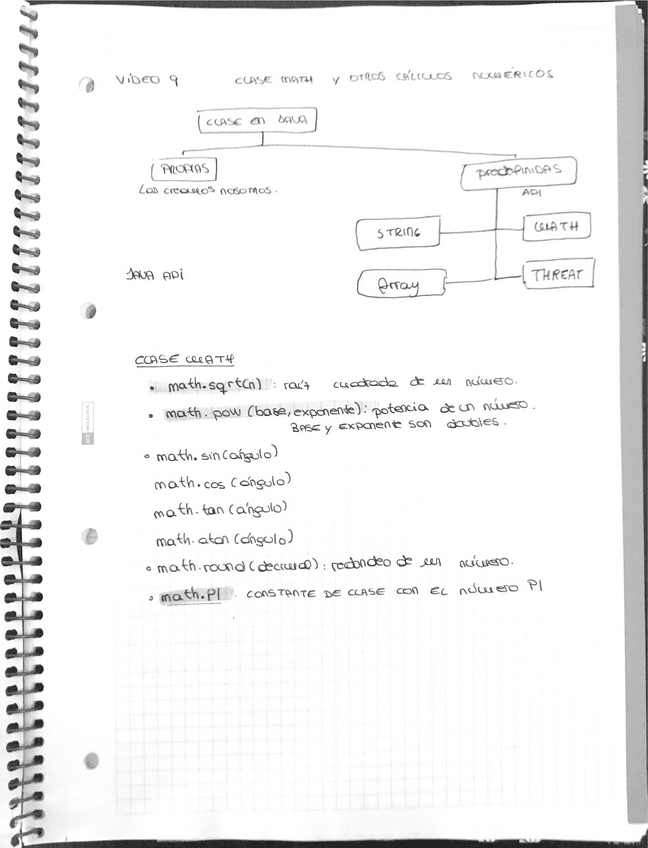 VÍDEO 9 CLASE MATH Y OTROS CÁLCULOS NUMÉRICOS
CLASE EN JAVA
PROPIAS
LAS CREAMOS NOSOTROS.
PREDEFINIDAS
API
STRING
MATH
Array
THREAT
JAVA API
CLASE MATH
• math.sqrt(n) : raíz cuadrada de un número.
• math.pow (base, exponente) : potencia de un número.
BASE y EXPONENTE son doubles.
• math.sin(ángulo)
math.cos (ángulo)
math.tan (ángulo)
math.atan (ángulo)
• math.round (decimal) : redondeo de un número.
• math.PI : CONSTANTE DE CLASE CON EL NÚMERO PI